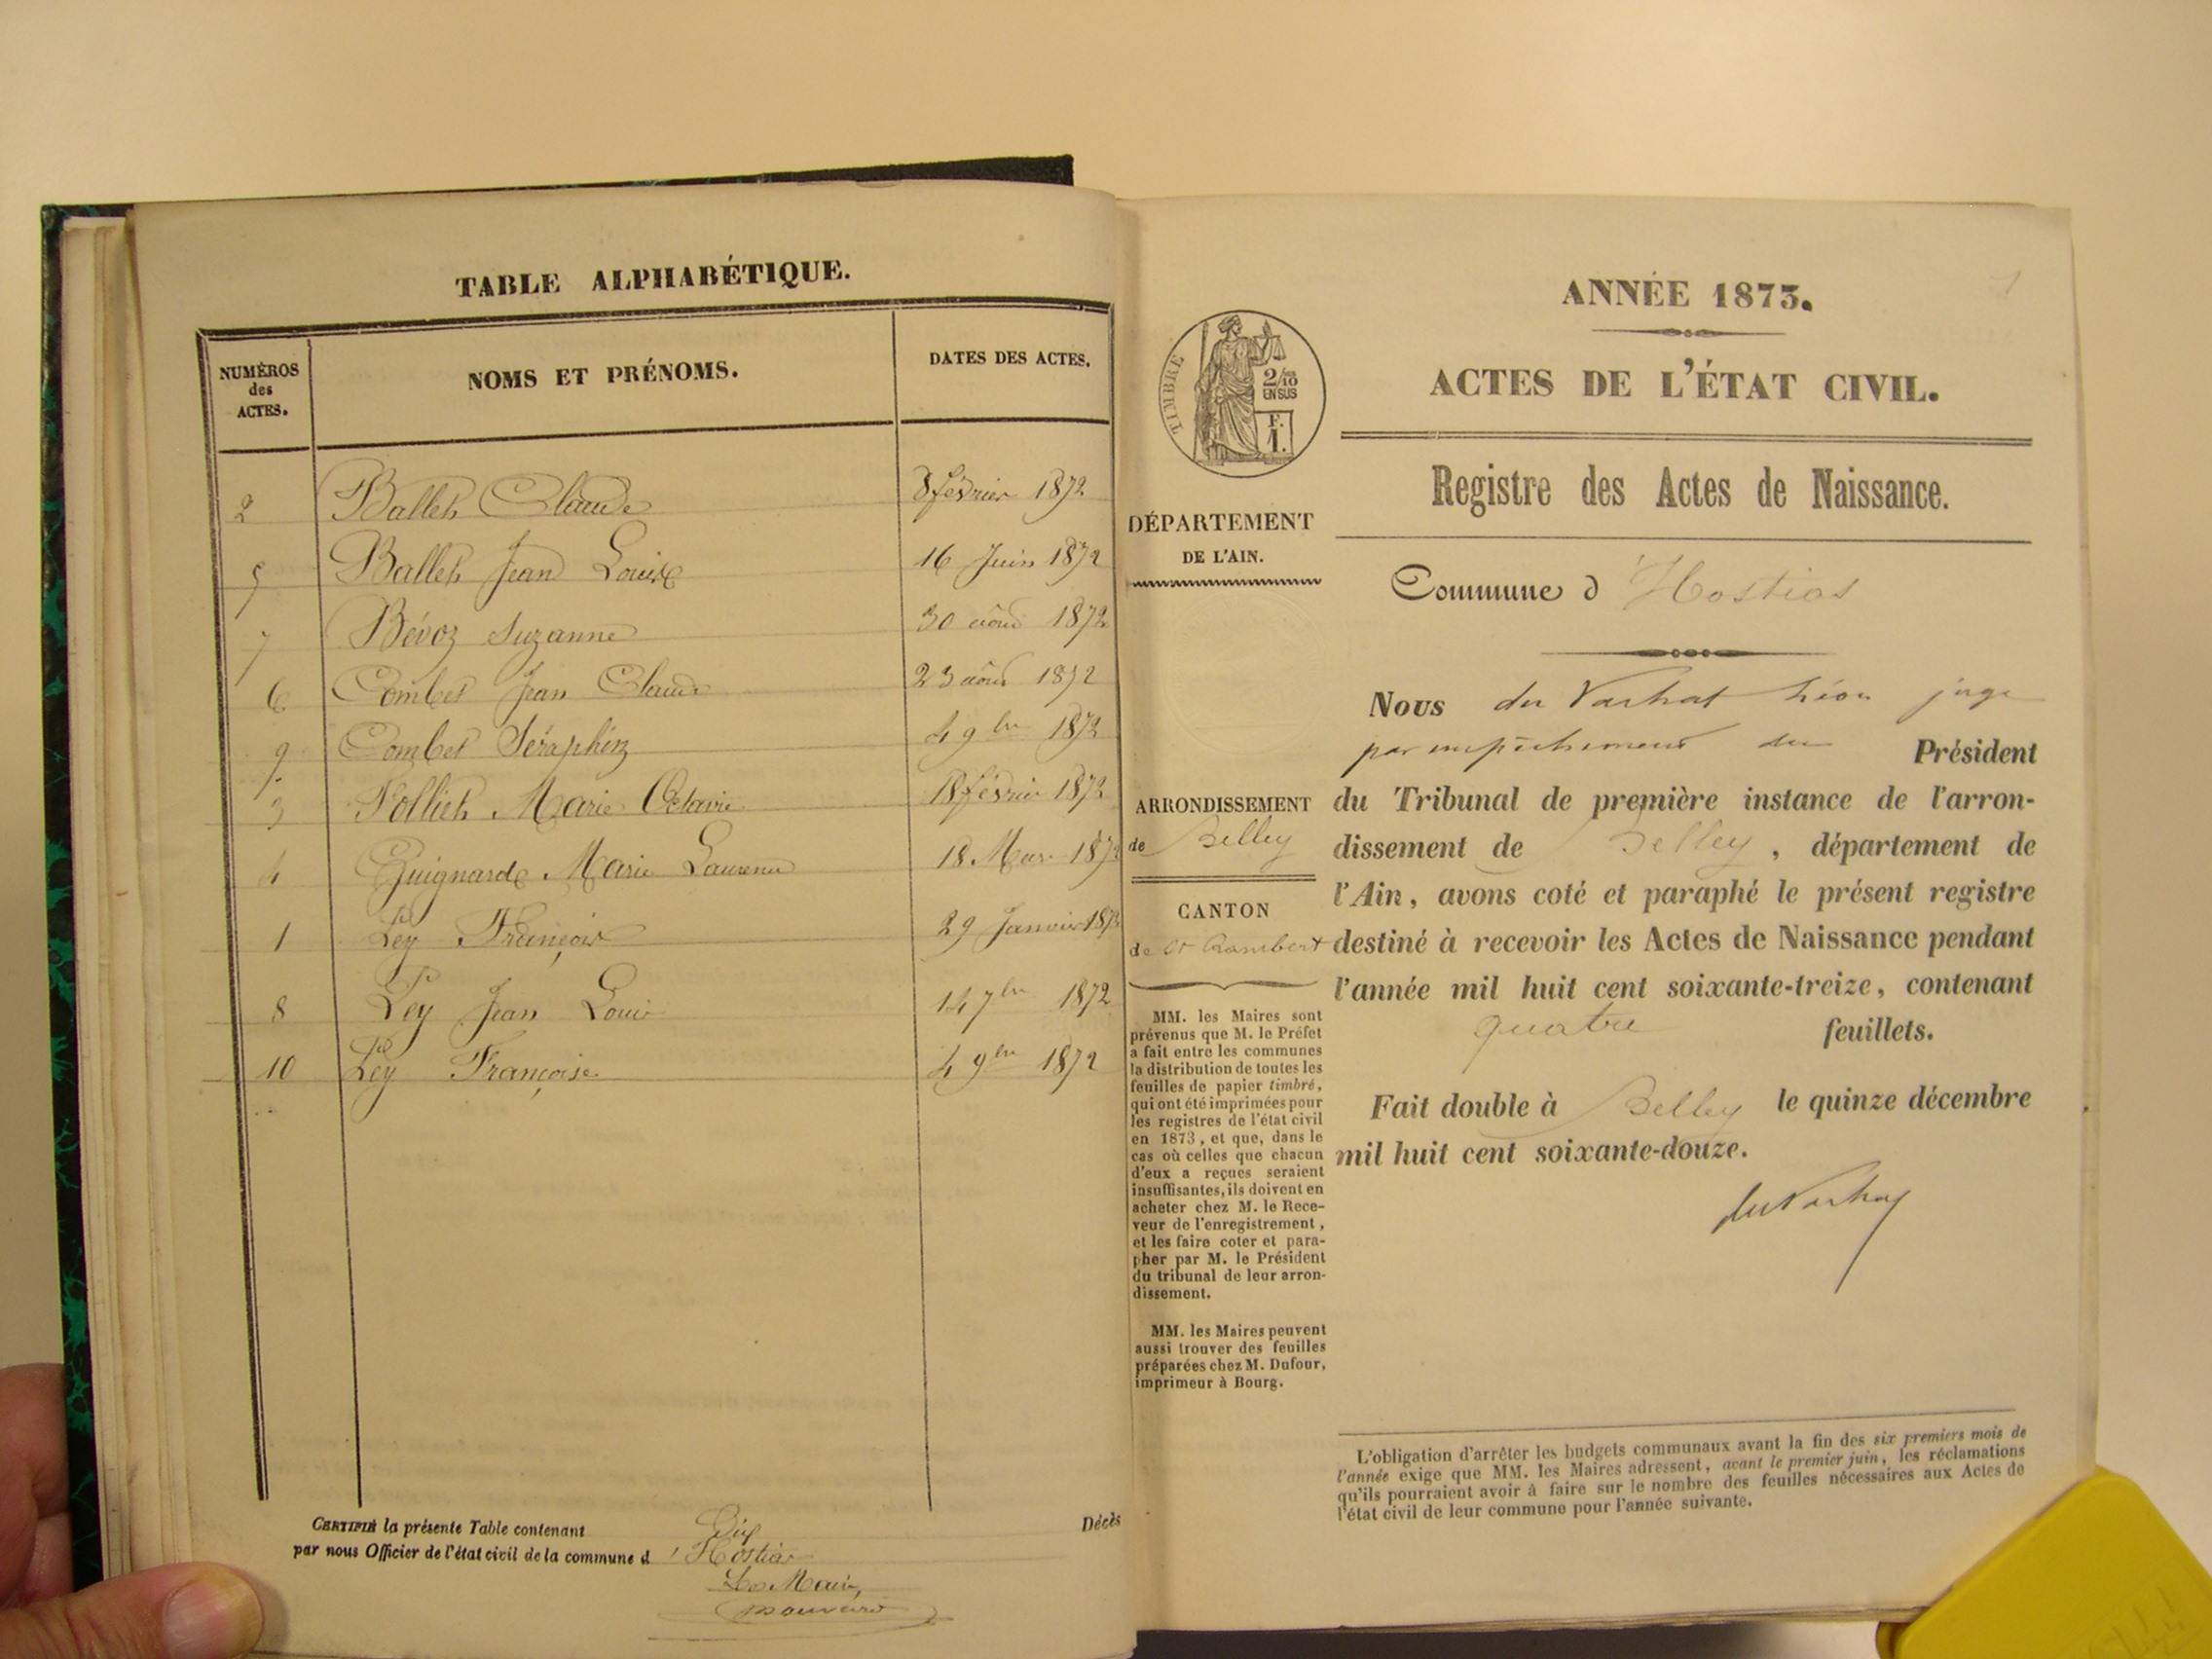 TABLE ALPHABÉTIQUE.
NUMÉROS
des
ACTES.
NOMS ET PRÉNOMS.
DATES DES ACTES.
2 Ballet Claude 8 février 1872
5 Ballet Jean Louis 16 Juin 1872
7 Bévoz Suzanne 30 août 1872
6 Combet Jean Claude 23 août 1872
9 Combet Séraphin 4 9bre 1872
3 Folliet Marie Octavie 18 février 1872
4 Guignard Marie 18 Mars 1872
1 Ley François 29 Janvier 1872
8 Ley Jean Louis 14 7bre 1872
10 Ley Françoise 4 9bre 1872
CERTIFIÉ la présente Table contenant Dix Décès
par nous Officier de l'état civil de la commune d'Hostias
Le Maire,
TIMBRE
2/10
EN SUS
F.
1.
DÉPARTEMENT
DE L'AIN.
ARRONDISSEMENT
de Belley
CANTON
de St Rambert
MM. les Maires sont
prévenus que M. le Préfet
a fait entre les communes
la distribution de toutes les
feuilles de papier timbré,
qui ont été imprimées pour
les registres de l'état civil
en 1873, et que, dans le
cas où celles que chacun
d'eux a reçues seraient
insuffisantes, ils doivent en
acheter chez M. le Rece-
veur de l'enregistrement,
et les faire coter et para-
pher par M. le Président
du tribunal de leur arron-
dissement.
MM. les Maires peuvent
aussi trouver des feuilles
préparées chez M. Dufour,
imprimeur à Bourg.
1
ANNÉE 1873.
ACTES DE L'ÉTAT CIVIL.
Registre des Actes de Naissance.
Commune d'Hostias
Nous du Léon juge
par empêchement du Président
du Tribunal de première instance de l'arron-
dissement de Belley, département de
l'Ain, avons coté et paraphé le présent registre
destiné à recevoir les Actes de Naissance pendant
l'année mil huit cent soixante-treize, contenant
quatre feuillets.
Fait double à Belley le quinze décembre
mil huit cent soixante-douze.
L'obligation d'arrêter les budgets communaux avant la fin des six premiers mois de
l'année exige que MM. les Maires adressent, avant le premier juin, les réclamations
qu'ils pourraient avoir à faire sur le nombre des feuilles nécessaires aux Actes de
l'état civil de leur commune pour l'année suivante.